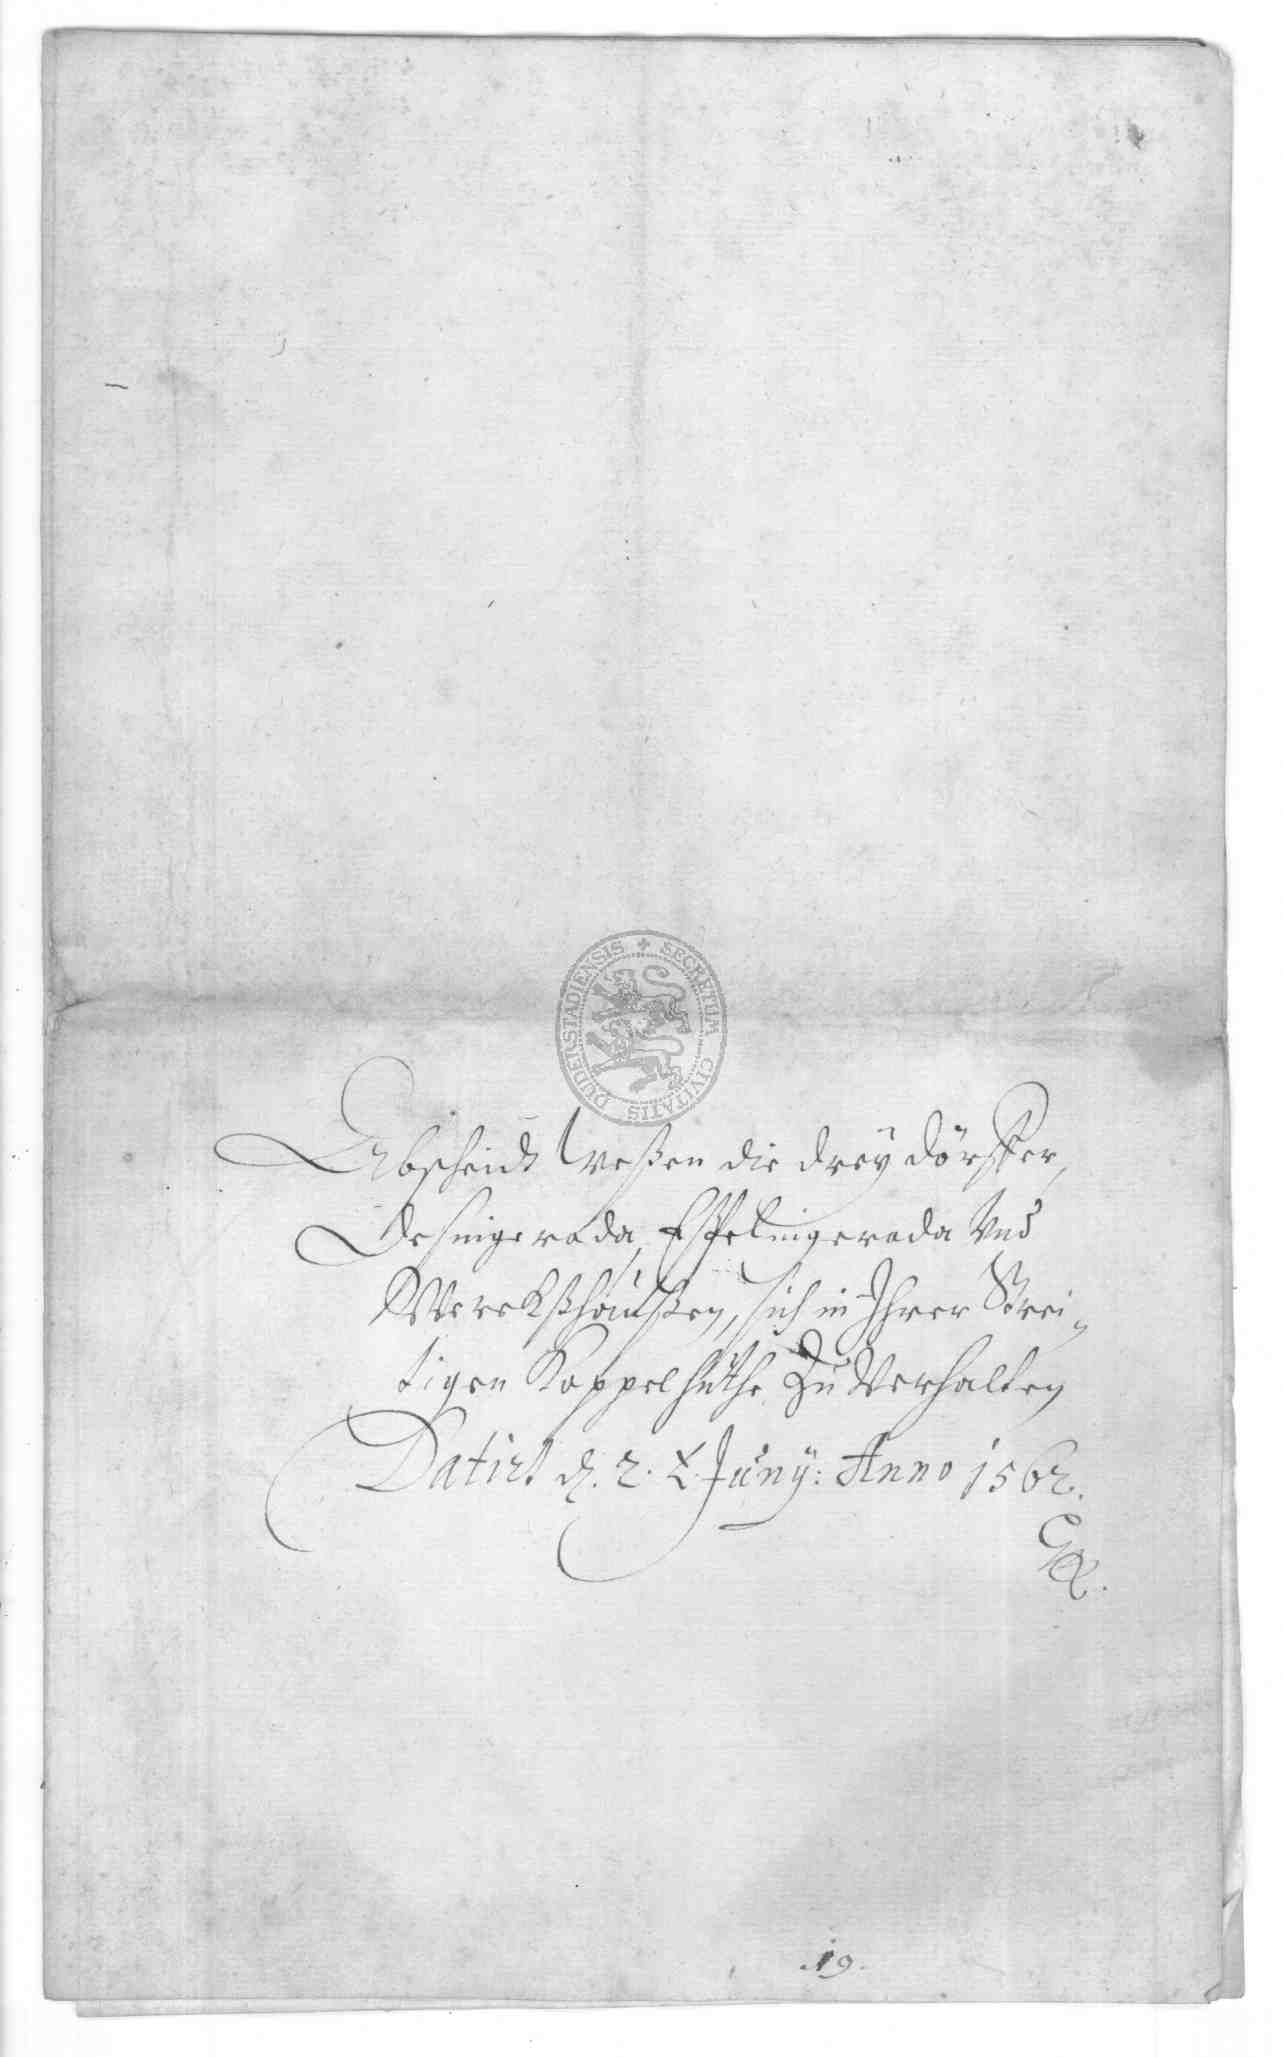 SECRETUM CIVITATIS DUDERSTADIENSIS
Abscheidt weßen die dreÿ dörffer,
Desingeroda, Eßpelingeroda Vnd
Werckßhaußen, sich in Ihrer Strei-
tigen Koppelhuthe Zu Verhalten
Datirt d. 2. Junÿ: Anno 1562.
19.